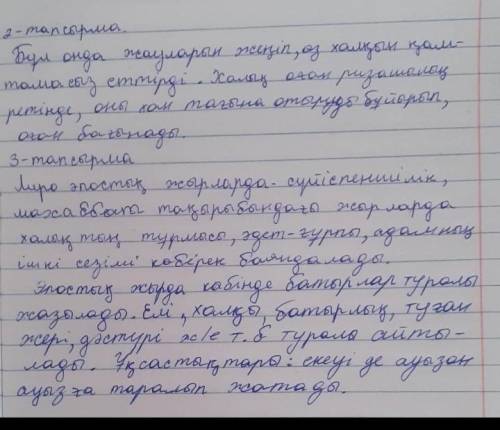 2-тапсырма.
Бұл онда жауларын жеңіп, өз халқын қам-
тамасыз еттірді. Халық оған ризашылық
ретінде, оны хан тағына отыруды бұйырып,
оған бағынады.
3-тапсырма
Лиро эпостық жырларда - сүйіспеншілік,
махаббаты тақырыбындағы жырларда
халықтың тұрмысы, әдет-ғұрпы, адамның
ішкі сезімі көбірек баяндалады.
Эпостық жырда көбінде батырлар туралы
жазылады. Елі, халқы, батырлық, туған
жері, дәстүрі ж/е т.б туралы айты-
лады. Ұқсастықтары: екеуі де ауыздан
ауызға таралып жатады.